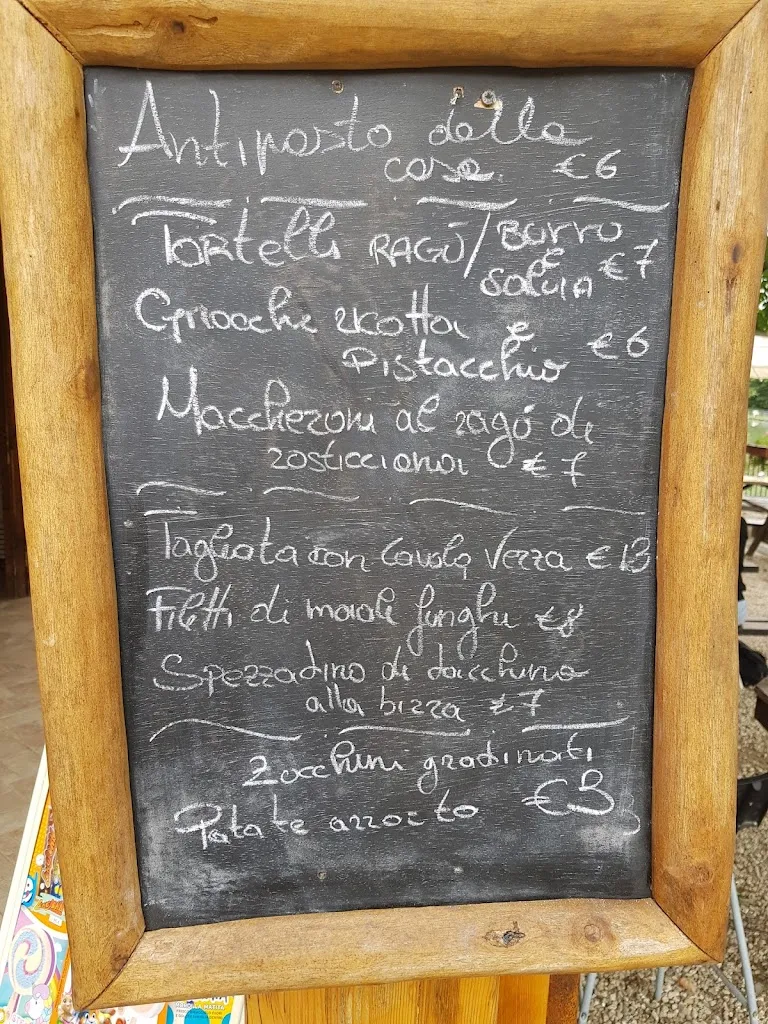 Antipasto della
casa. €6
Tortelli RAGÙ/Burro
e
salvia €7
Gnocchi ricotta e
Pistacchio €6
Maccheroni al ragù di
rosticciana €7
Tagliata con Cavolo Verza €13
Filetti di maiale funghi €8
Spezzatino di tacchino
alla birra €7
Zucchini gratinati
€3
Patate arrosto